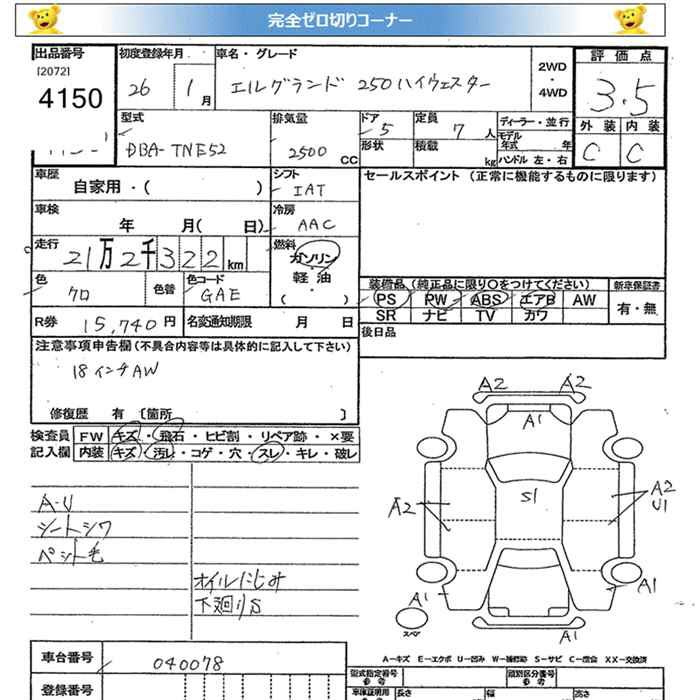 完全ゼロ切りコーナー
出品番号 初度登録年月 車名・グレード 評価点
[2072]
4150 26 1月 エルグランド 250ハイウェスター 2WD・4WD 3.5
型式 排気量 ドア 定員 ディーラー・並行 外装 内装
DBA-TNE52 2500 CC 5 7人 モデル年式 年 C C
形状 積載 kg ハンドル 左・右
車歴 シフト セールスポイント (正常に機能するものに限ります)
自家用・( ) IAT
車検 冷房
年 月( 日) AAC
走行 燃料
21万2千322km ガソリン・軽油・( )
色 色替 色コード 装備品 (純正品に限り○をつけてください) 新車保証書
クロ GAE PS PW ABS エアB AW 有・無
SR ナビ TV カワ
R券 15,740円 名変通知期限 月 日 後日品
注意事項申告欄(不具合内容等は具体的に記入して下さい)
18インチAW
修復歴 有 〔箇所 〕
検査員 FW キズ・飛石・ヒビ割・リペア跡・×要
記入欄 内装 キズ・汚レ・コゲ・穴・スレ・キレ・破レ
A-U
シートシワ
ペット毛
オイルにじみ
下廻りS
A2 A2
A1
S1
A2 A2
U1
A1 A1
スペア A1
A-キズ E-エクボ U-凹み W-補修跡 S-サビ C-腐食 XX-交換済
車台番号 040078
型式指定番号 参考 類別区分番号 参考
登録番号 車庫証明用 長さ 幅 高さ